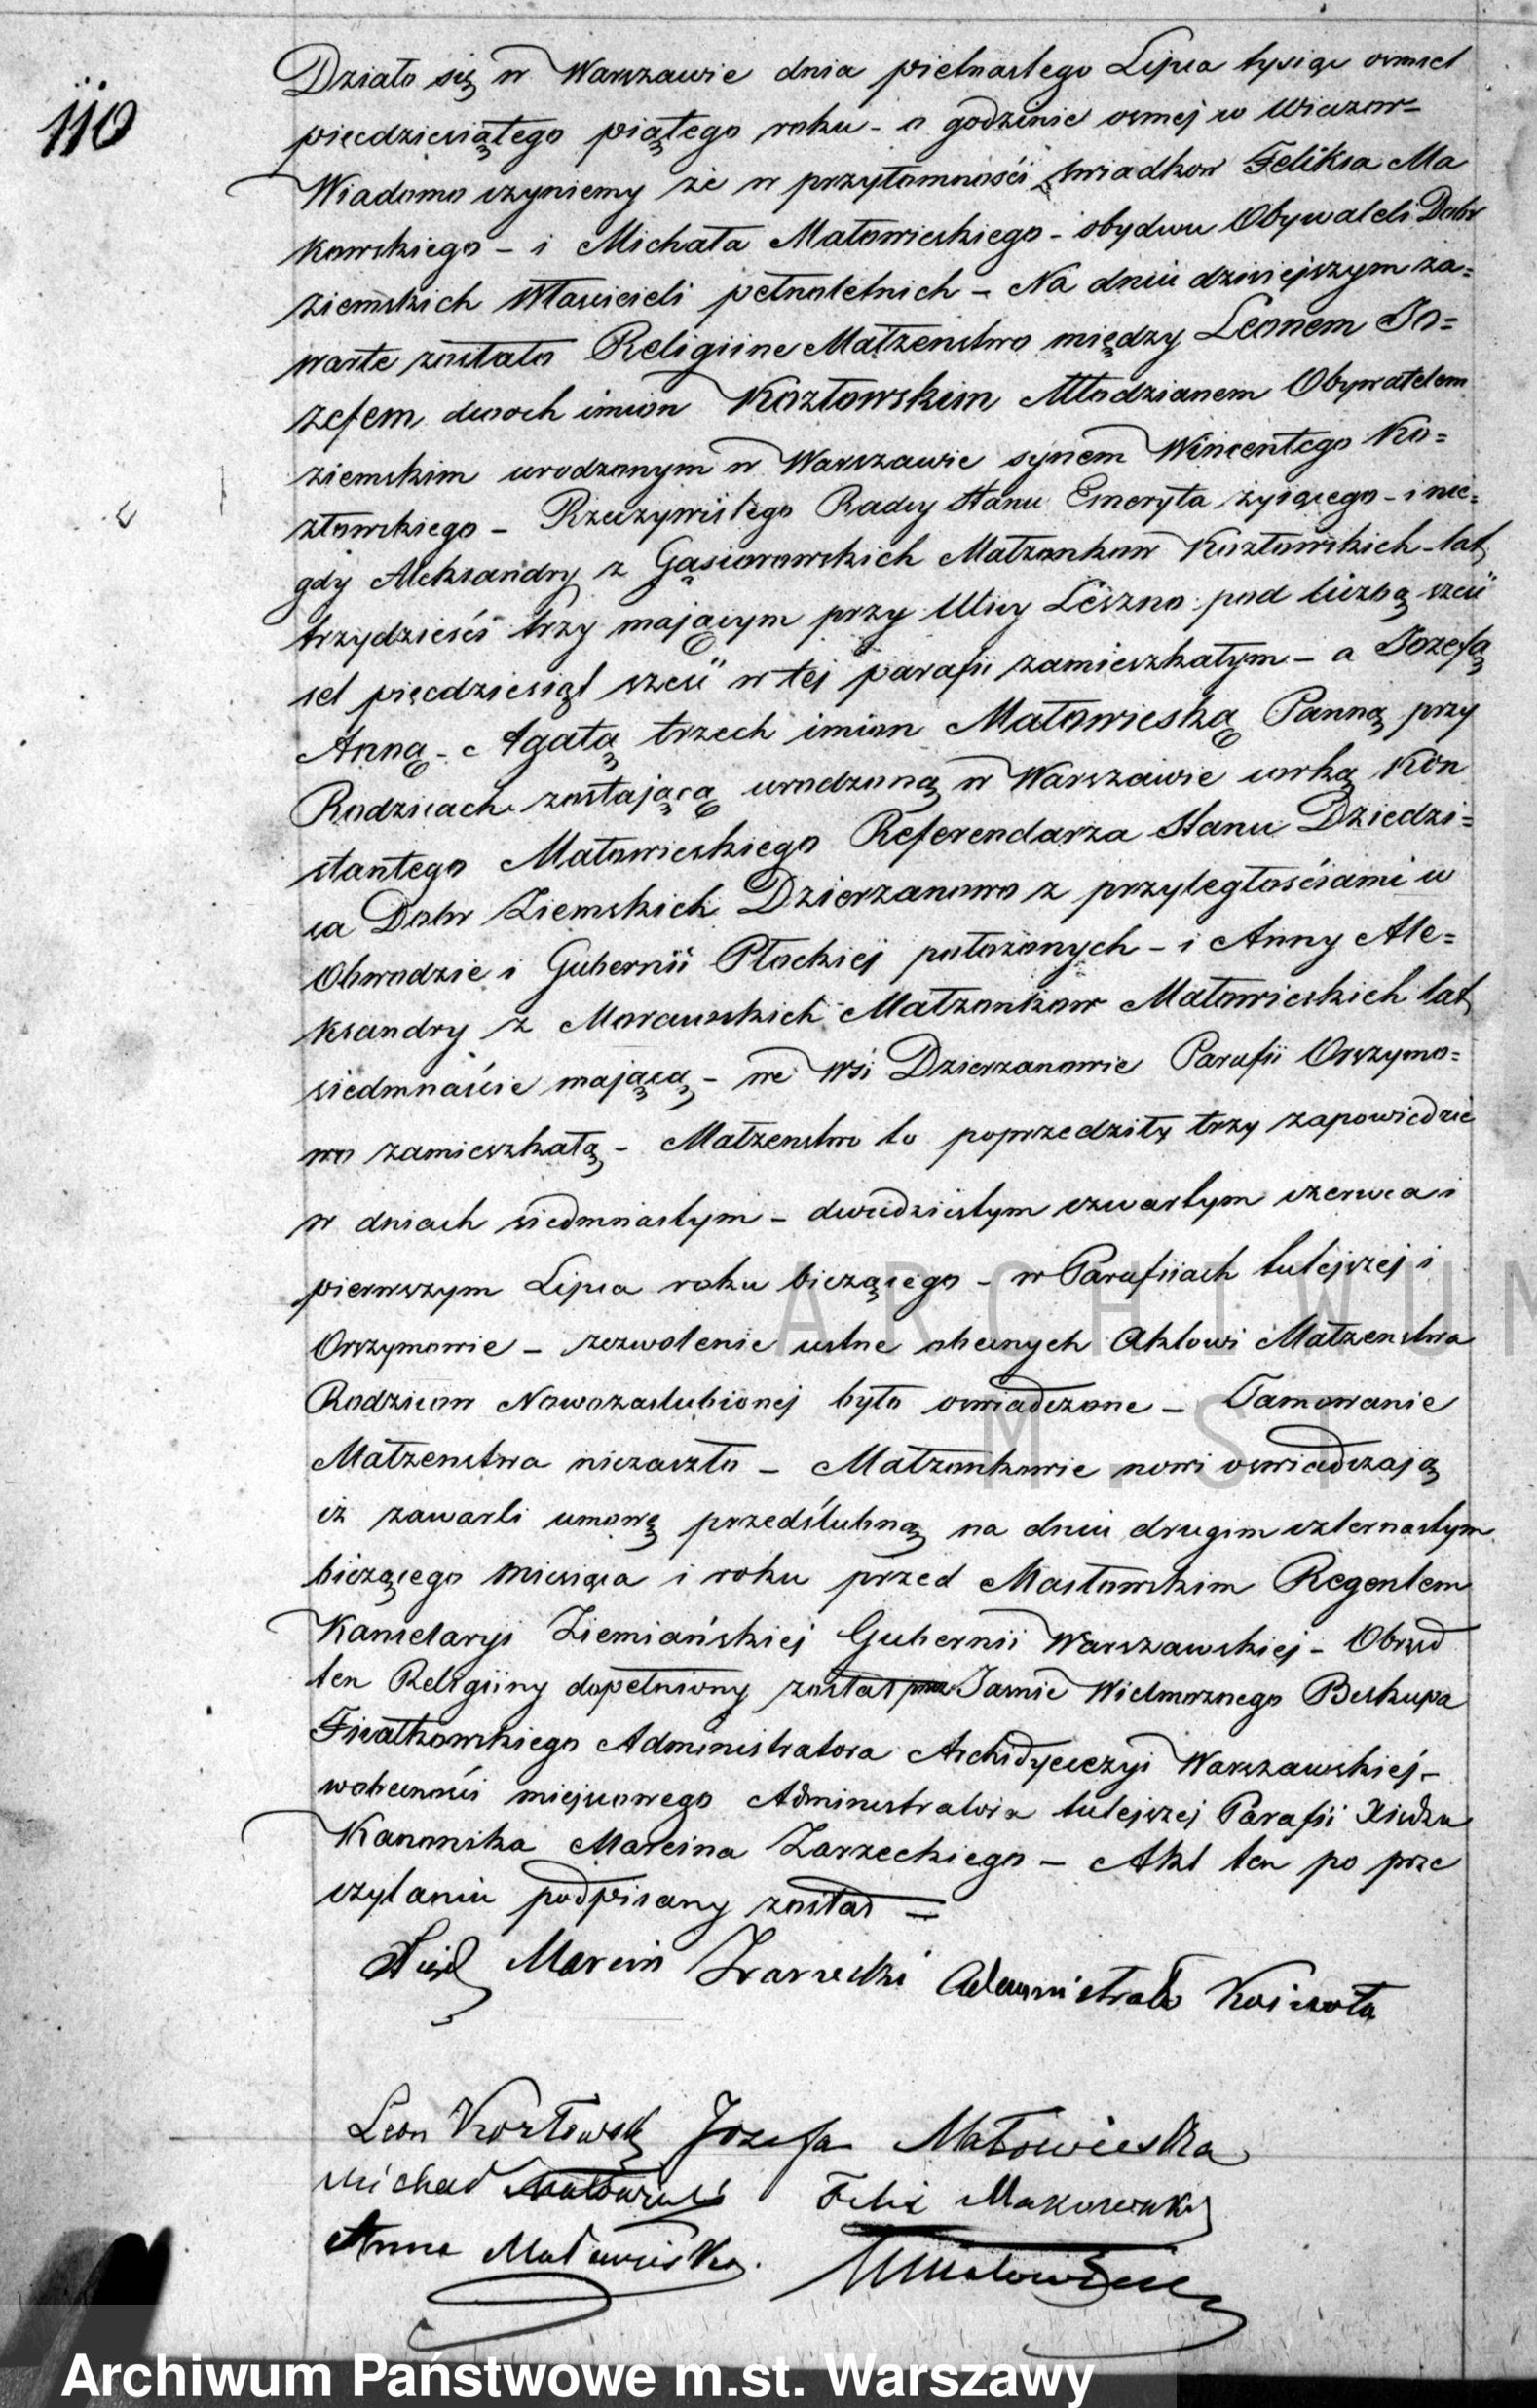 110
Działo się w Warszawie dnia pietnastego Lipca tysiąc ośmset
pięcdziesiątego piątego roku - o godzinie osmej w Wieczor=
Wiadomo czyniemy że w przytomności swiadkow Felixa Ma
kowskiego - i Michała Małowieskiego - obydwu Obywateli Dobr
ziemskich Właścicieli pełnoletnich - Na dniu dzisiejszym za=
warte zostało Religiine Małżenstwo między Leonem Jo=
zefem dwoch imion Kozłowskim Młodzianem Obywatelem
ziemskim urodzonym w Warszawie synem Wincentego Ko=
złowskiego - Rzeczywistego Radcy Stanu Emeryta żyiącego - i nie=
gdy Aleksandry z Gąsiorowskich Małżonkow Kozłowskich - lat
trzydzieści trzy mającym przy Ulicy Leszno pod liczbą szesć
set pięcdziesiąt szesć w tej parafii zamieszkałym - a Jozefą
Anną - Agatą trzech imion Małowieską Panną przy
Rodzicach zostającą urodzoną w Warszawie corką Kon
stantego Małowieskiego Referendarza Stanu Dziedzi=
ca Dobr Ziemskich Dzierzanowo z przyległościami w
Obwodzie i Gubernii Płockiej położonych - i Anny Ale=
ksandry z Morawskich Małżonkow Małowieskich lat
siedmnaście mającą - we Wsi Dzierzanowie Parafii Orszymo=
wo zamieszkałą - Małżenstwo to poprzedziły trzy zapowiedzie
w dniach siedmnastym - dwudziestym czwartym czerwca i
pierwszym Lipca roku bieżącego - w Parafiiach tutejszej i
Orszymowie - zezwolenie ustne obecnych Aktowi Małżenstwa
Rodzicow Nowozaslubionej było oswiadczone - Tamowanie
Małżenstwa niezaszło - Małżonkowie nowi oswiadczają
iż zawarli umowę przedślubną na dniu drugim czternastym
bieżącego miesiąca i roku przed Masłowskim Regentem
Kancelaryi Ziemiańskiej Gubernii Warszawskiej - Obrzęd
ten Religiiny dopełniony został przez Jaśnie Wielmożnego Biskupa
Fiiałkowskiego Administratora Archidyecezyi Warszawskiej -
wobecności miejscowego Administratora tutejszej Parafii Xiedza
Kanonika Marcina Zarzeckiego - Akt ten po prze
czytaniu podpisany został =
Xiądz Marcin Zarzecki Administrator Koscioła
Leon Kozłowski Jozefa Małowieska
Michał Małowieski Felix Makowski
Anna Małowieska. Małowieski
ARCHIWUM
M. ST
Archiwum Państwowe m.st. Warszawy